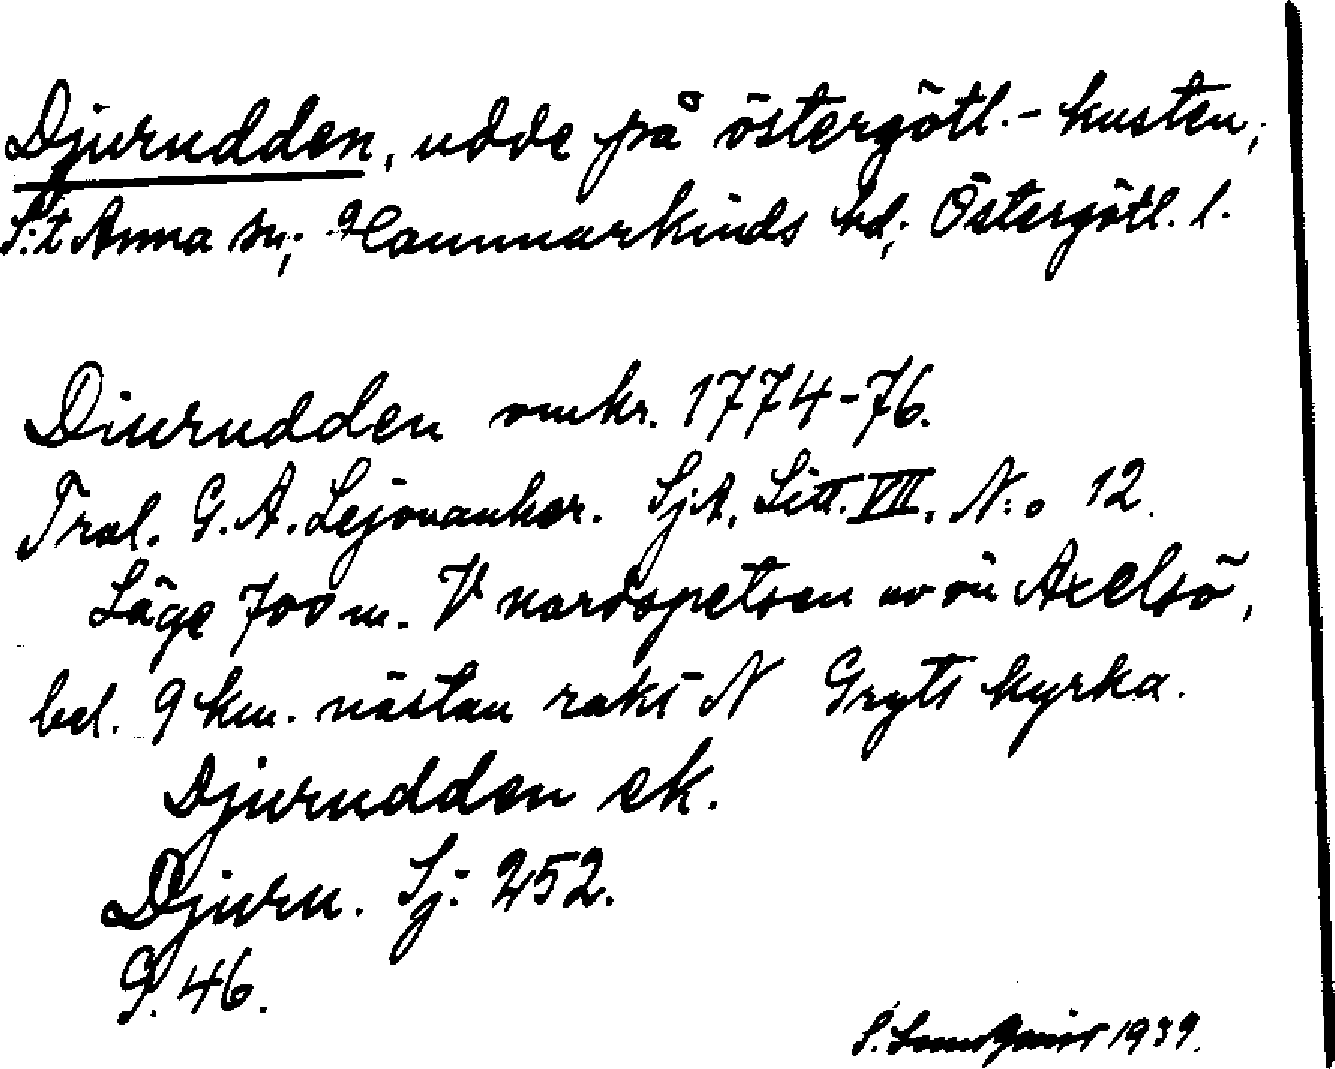 Djurudden, udde på östergötl.-kusten,
S:t Anna sn, Hammarkinds hd, Östergötl. l.
Diurudden omkr. 1774-76.
G. A. Lejonankar. SjA. Litt. VII. N:o 12.
Läge 700 m. V nordspetsen av ön Axelsö,
bel. 9 km. nästan rakt N Gryts kyrka.
Djurudden ek.
Djuru. Sj: 252.
G. 46.
S. 1939.